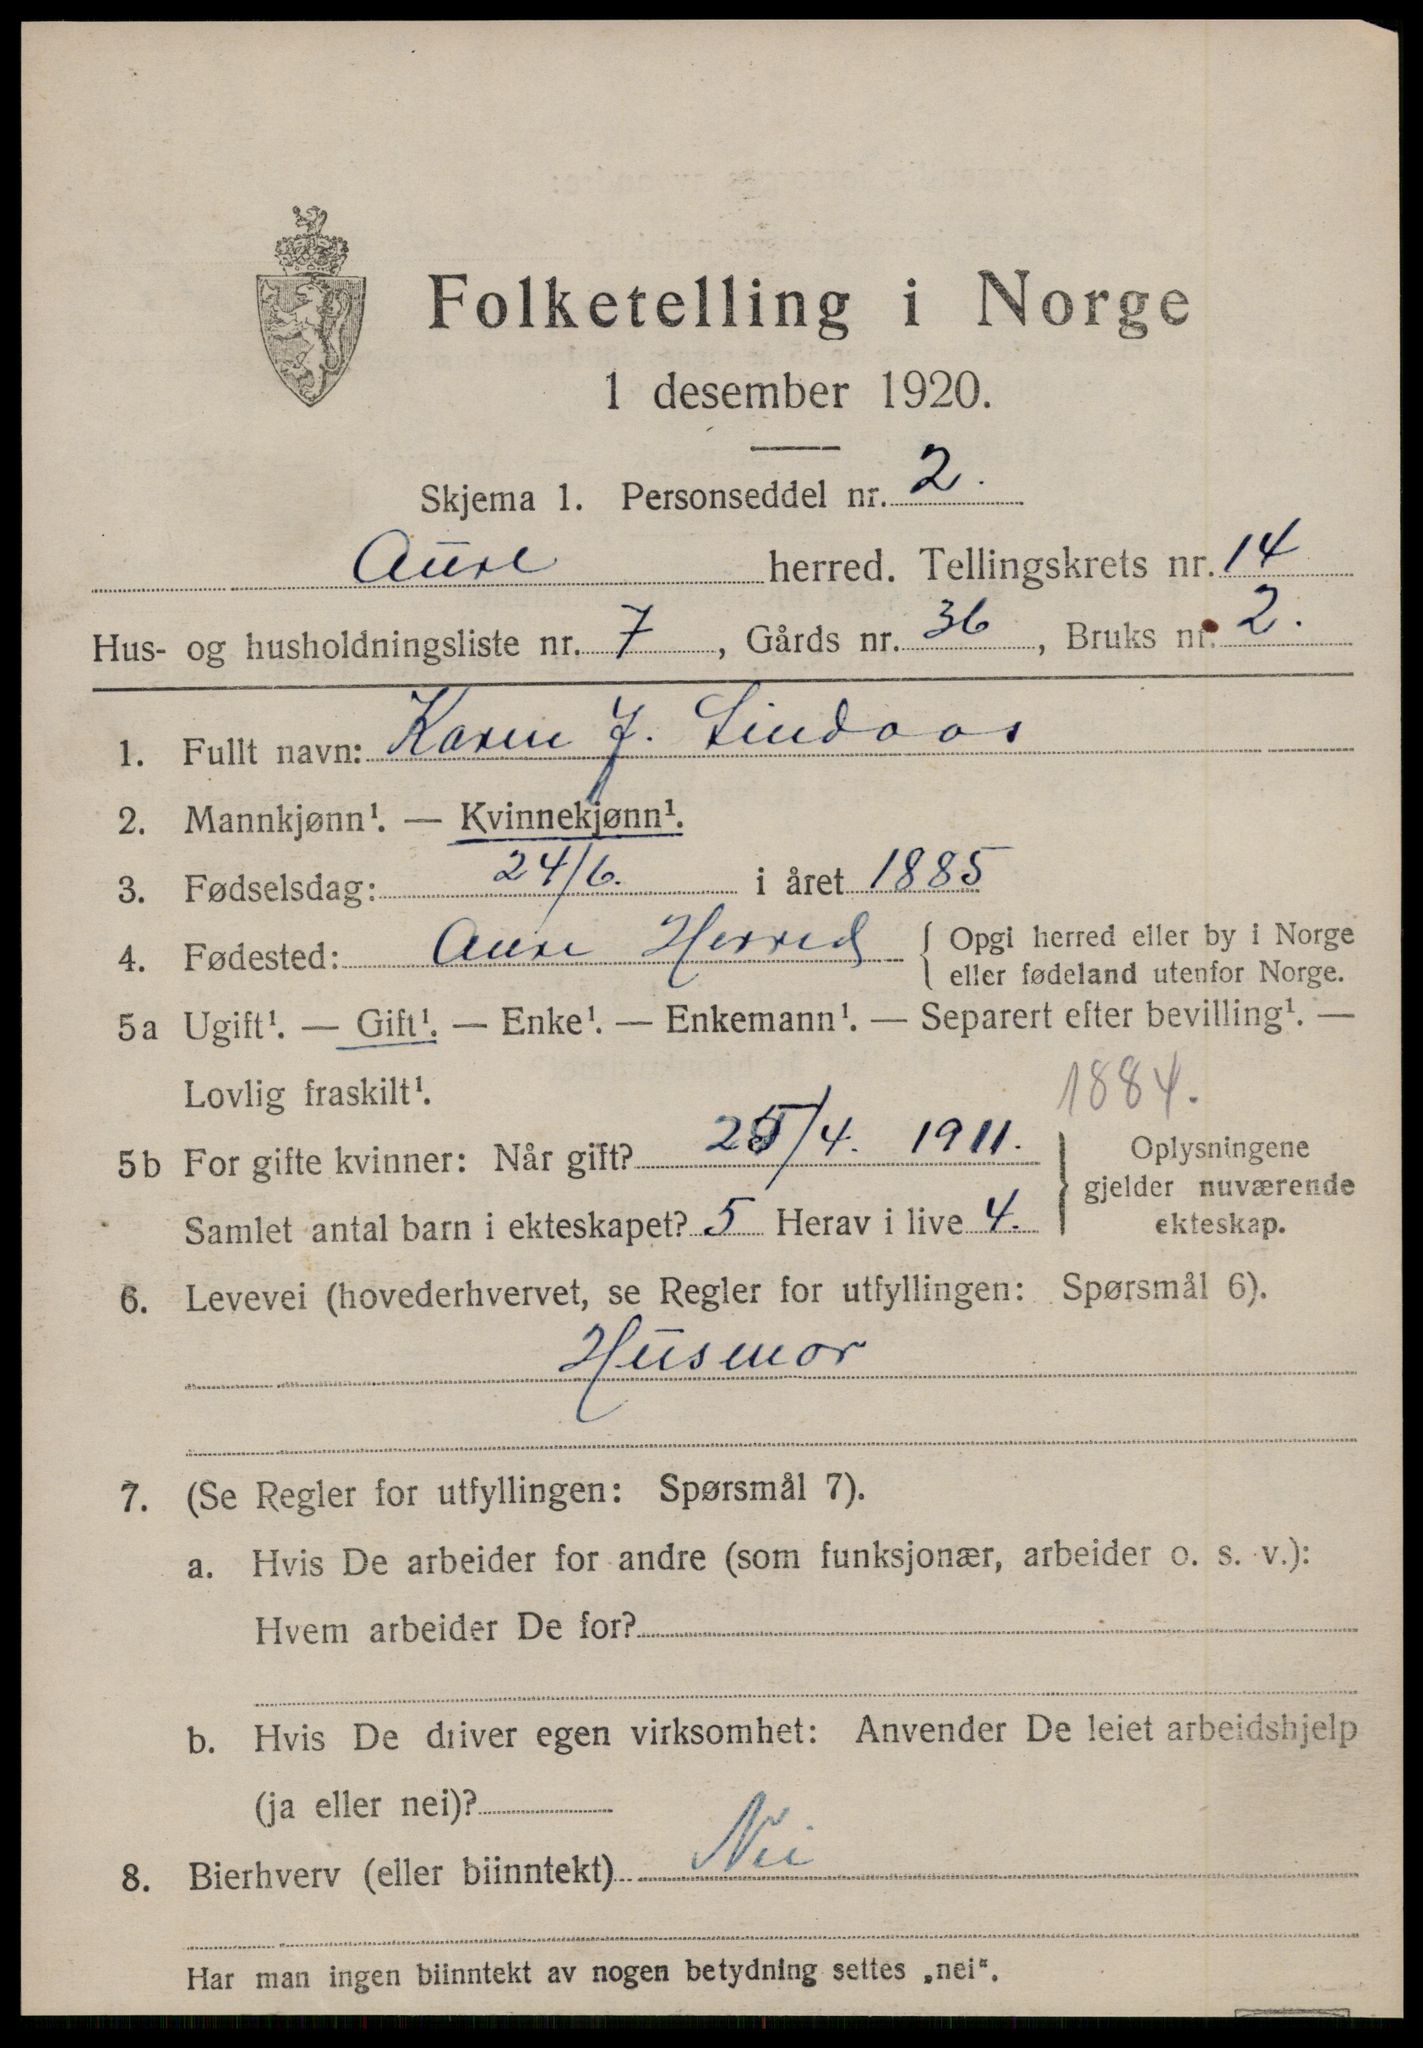 Folketelling i Norge
1 desember 1920.
Skjema 1. Personseddel nr. 2.
Aure herred. Tellingskrets nr. 14
Hus- og husholdningsliste nr. 7, Gårds nr. 36, Bruks nr. 2.
1. Fullt navn: Karen J. Lindaas
2. Mannkjønn¹. — Kvinnekjønn¹.
3. Fødselsdag: 24/6. i året 1885
4. Fødested: Aure Herred { Opgi herred eller by i Norge
eller fødeland utenfor Norge.
5a Ugift¹. — Gift¹. — Enke¹. — Enkemann¹. — Separert efter bevilling¹. —
Lovlig fraskilt¹. 1884.
5b For gifte kvinner: Når gift? 25/4. 1911. } Oplysningene
gjelder nuværende
Samlet antal barn i ekteskapet? 5 Herav i live 4. ekteskap.
6. Levevei (hovederhvervet, se Regler for utfyllingen: Spørsmål 6).
Husmor
7. (Se Regler for utfyllingen: Spørsmål 7).
a. Hvis De arbeider for andre (som funksjonær, arbeider o. s. v.):
Hvem arbeider De for?
b. Hvis De driver egen virksomhet: Anvender De leiet arbeidshjelp
(ja eller nei)?
8. Bierhverv (eller biinntekt) Nei
Har man ingen biinntekt av nogen betydning settes „nei“.